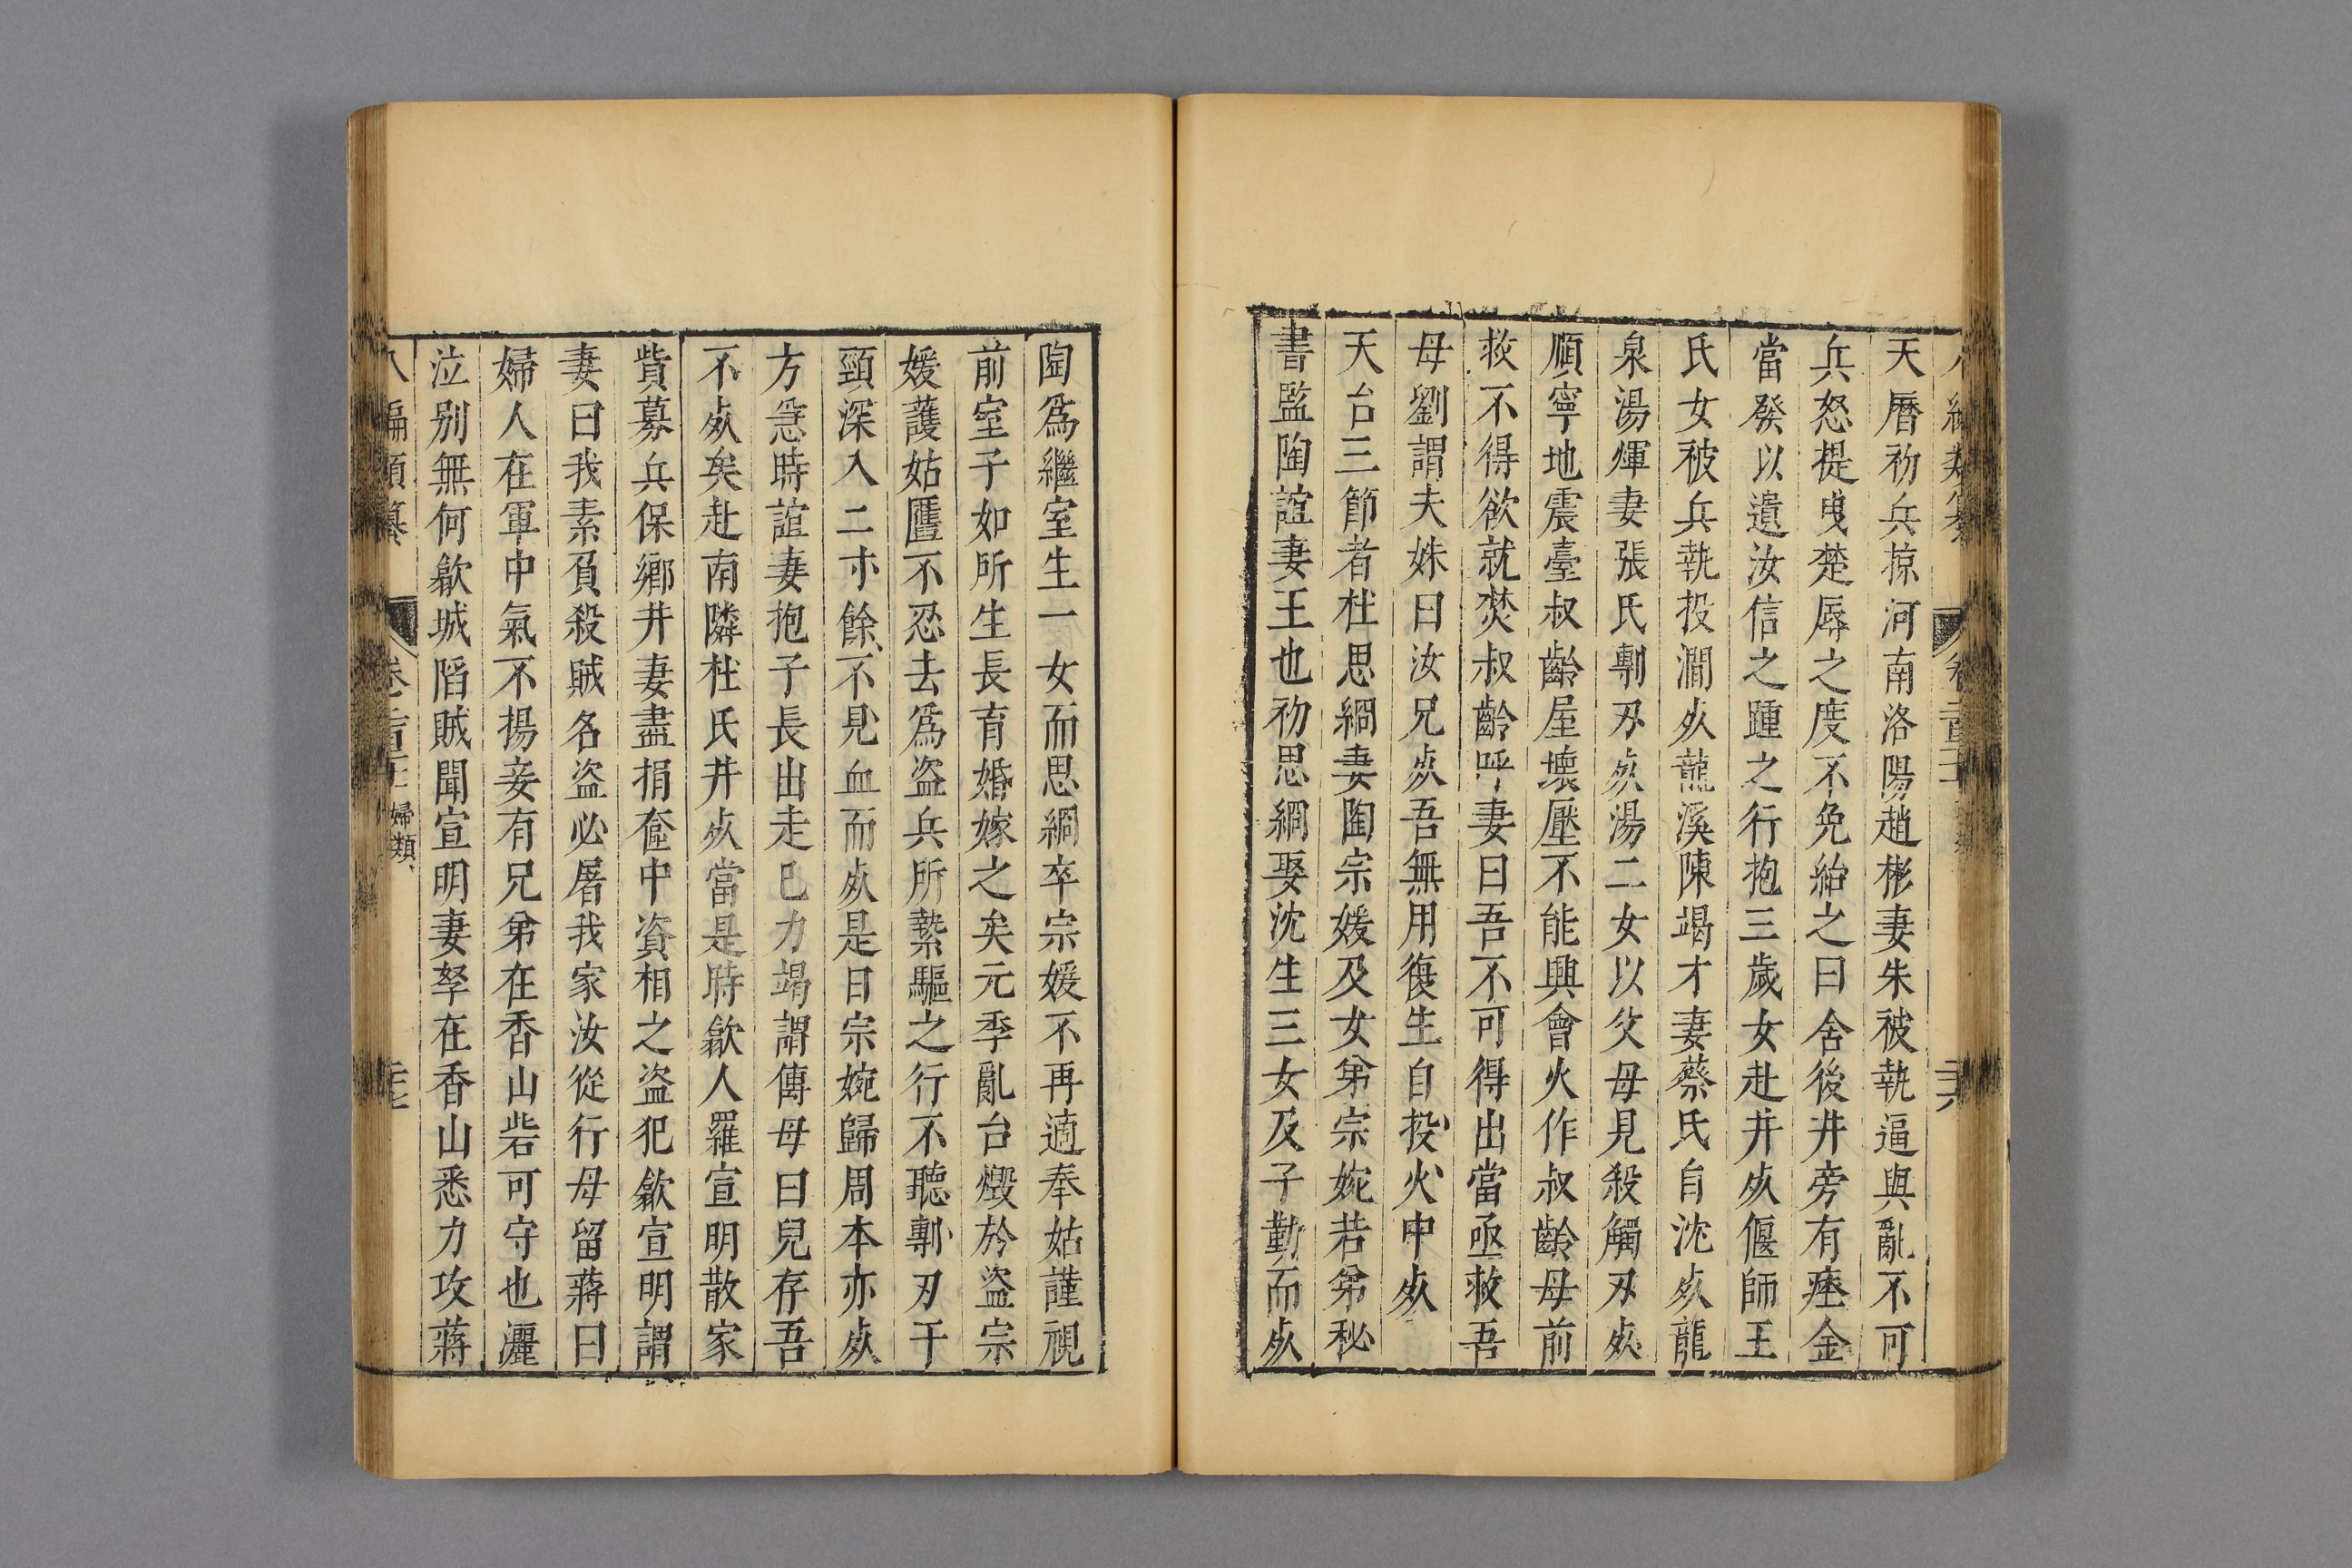 天曆初兵掠河南洛陽趙彬妻朱被執逼與亂不可
兵怒提曳楚辱之度不免紿之曰舍後井旁有瘞金
當發以遺汝信之踵之行抱三歲女赴井死偃師王
氏女被兵執投澗死龍溪陳竭才妻蔡氏自沈死龍
泉湯煇妻張氏剸刃死湯二女以父母見殺觸刃死
順寧地震臺叔齡屋壞壓不能興會火作叔齡母前
救不得欲就焚叔齡呼妻曰吾不可得出當亟救吾
母劉謂夫姝曰汝兄死吾無用復生自投火中死
天台三節者杜思絅妻陶宗媛及女弟宗婉若弟秘
書監陶誼妻王也初思絅娶沈生三女及子勤而死
陶爲繼室生一女而思絅卒宗媛不再適奉姑謹視
前室子如所生長育婚嫁之矣元季亂台燬於盜宗
媛護姑匶不忍去爲盜兵所縶驅之行不聽剸刃于
頸深入二寸餘不見血而死是日宗婉歸周本亦死
方急時誼妻抱子長出走已力竭謂傳母曰兒存吾
不死矣赴南隣杜氏井死當是時歙人羅宣明散家
貲募兵保鄉井妻盡捐奩中資相之盜犯歙宣明謂
妻曰我素負殺賊名盜必屠我家汝從行母留蔣曰
婦人在軍中氣不揚妾有兄弟在香山砦可守也灑
泣别無何歙城陷賊聞宣明妻孥在香山悉力攻蔣
八編類纂 卷 婦類